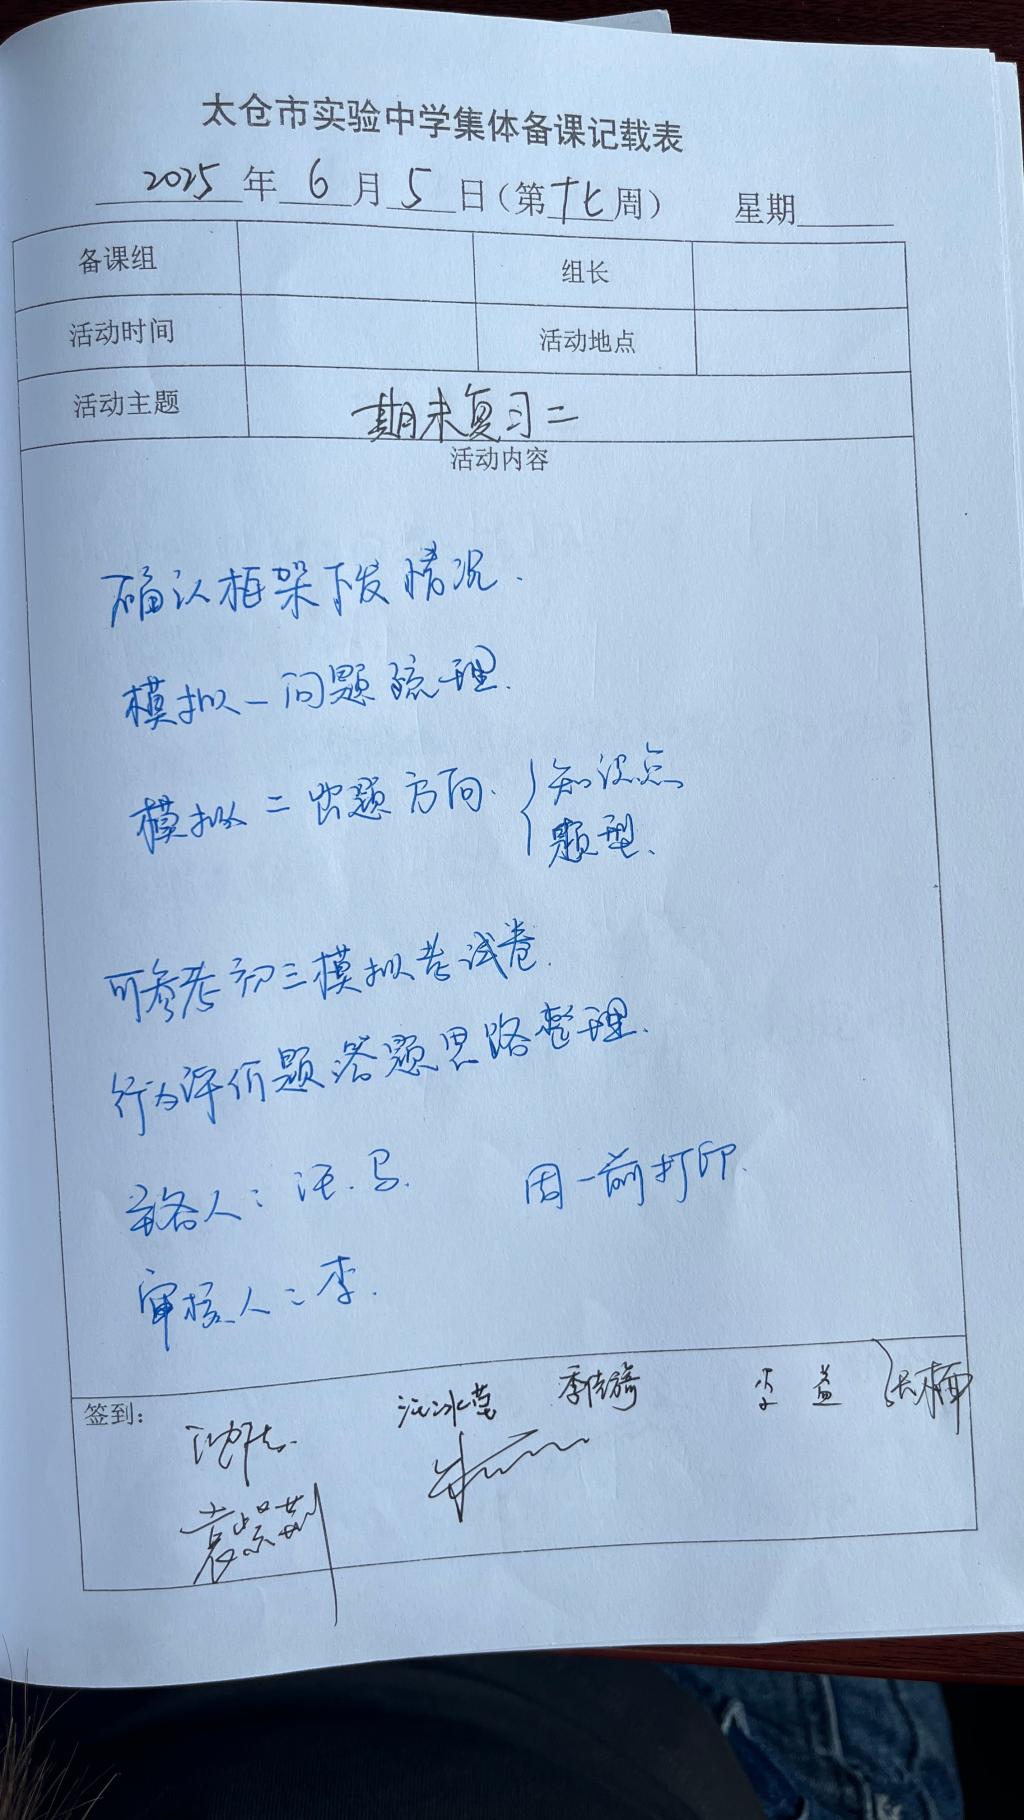 太仓市实验中学集体备课记载表
2025年6月5日(第十七周) 星期
备课组 组长
活动时间 活动地点
活动主题 期末复习二
活动内容
确认框架下发情况.
模拟一问题梳理.
模拟二出题方向. { 知识点
题型.
可参考初三模拟考试卷.
行为评价题答题思路整理.
主备人: 汪.马. 周一前打印.
审核人: 李.
签到:
汪冰莹 李益